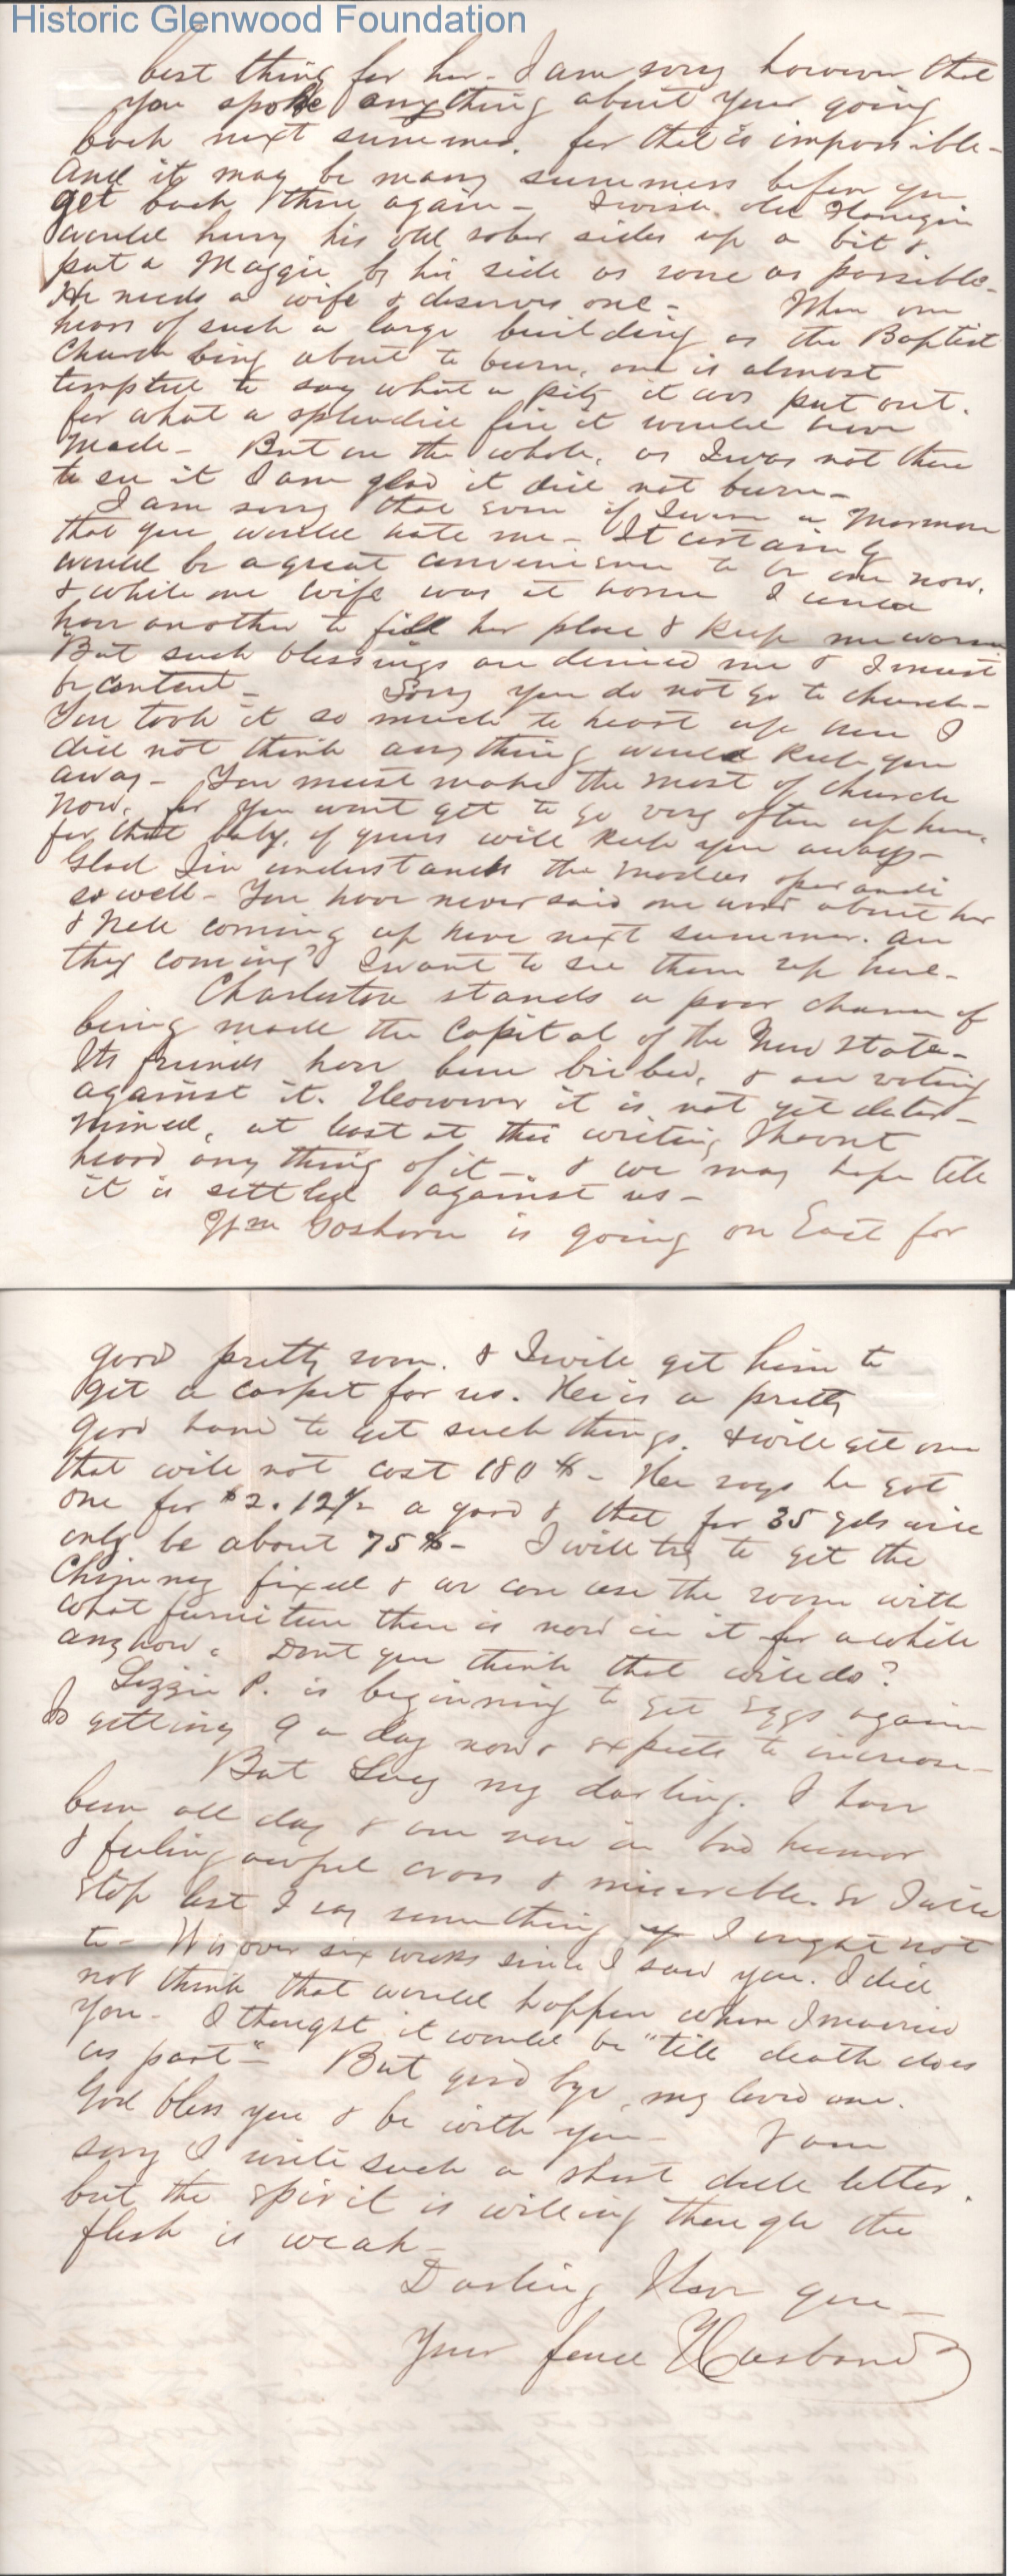 Historic Glenwood Foundation
best thing for her - I am sorry however that
you spoke anything about your going
back next summer. for that is impossible -
And it may be many summers before you
get back there again - I wish old
would hurry his old sober sides up a bit &
put a Maggie by his side as soon as possible -
He needs a wife & deserves one - When one
hears of such a large building as the Baptist
Church being about to burn, one is almost
tempted to say what a pity it was put out.
for what a splendid fire it would have
made - But on the whole, as I was not there
to see it I am glad it did not burn -
I am sorry that even if I were a Mormon
that you would hate me - It certainly
would be a great convenience to be one now,
& while one wife was at home I could
have another to fill her place & keep me warm
But such blessings are denied me & I must
be content - Sorry you do not go to church -
You took it so much to heart up here I
did not think anything would keep you
away - You must make the most of church
now, for you wont get to go very often up here,
for that baby of yours will keep you always -
Glad understands the modus operandi
so well - You have never said one word about her
& Nell coming up here next summer. are
they coming? I want to see them up here -
Charleston stands a poor chance of
being made the Capital of the New State -
Its friends have been bribed, & are voting
against it. However it is not yet deter-
mined, at least at this writing I havnt
heard any thing of it - & we may hope till
it is settled against us -
Wm Goshorn is going on East for
good pretty soon. & I will get him to
get a carpet for us. He is a pretty
good hand to get such things. & will get one
that will not cost 180 $ - He says he got
one for $2.12½ a yard & that for 35 yds will
only be about 75$ - I will try to get the
Chimney fixed & we can use the room with
what furniture there is now in it for awhile
anyhow. Dont you think that will do?
Lizzie P. is beginning to get eggs again
Is getting 9 a day now & expects to increase -
But Lucy my darling. I have
been all day & am now in bad humor
& feeling awful cross & miserable. So I will
stop lest I say something I ought not
to - It is over six weeks since I saw you. I did
not think that would happen when I married
you - I thought it would be "till death does
us part" - But good bye, my loved one.
God bless you & be with you - I am
sorry I write such a short dull letter.
but the spirit is willing though the
flesh is weak -
Darling I love you -
Your fond Husband